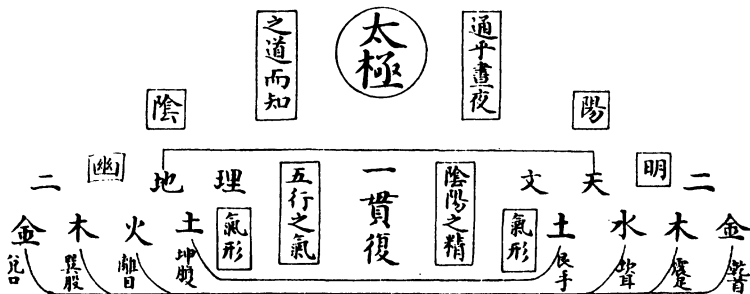 太極
通乎晝夜
之道而知
陽
陰
明
幽
二 天 文
陰陽之精
一貫復
五行之氣
理 地 二
金 木 水 土
氣形
氣形
土 火 木 金
乾首
震足
坎耳
艮手
坤腹
離目
巽股
兌口